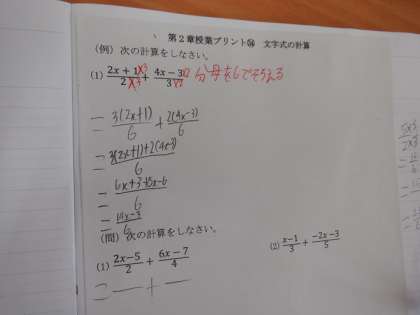 第2章授業プリント㊱ 文字式の計算
(例) 次の計算をしなさい。
(1) (2x+1)/2 ×3/×3 + (4x-3)/3 ×2/×2 分母を6でそろえる
= 3(2x+1)/6 + 2(4x-3)/6
= (3(2x+1)+2(4x-3))/6
= (6x+3+8x-6)/6
= (14x-3)/6
(問) 次の計算をしなさい。
(1) (2x-5)/2 + (6x-7)/4
(2) (x-1)/3 + (-2x-3)/5
= — + —